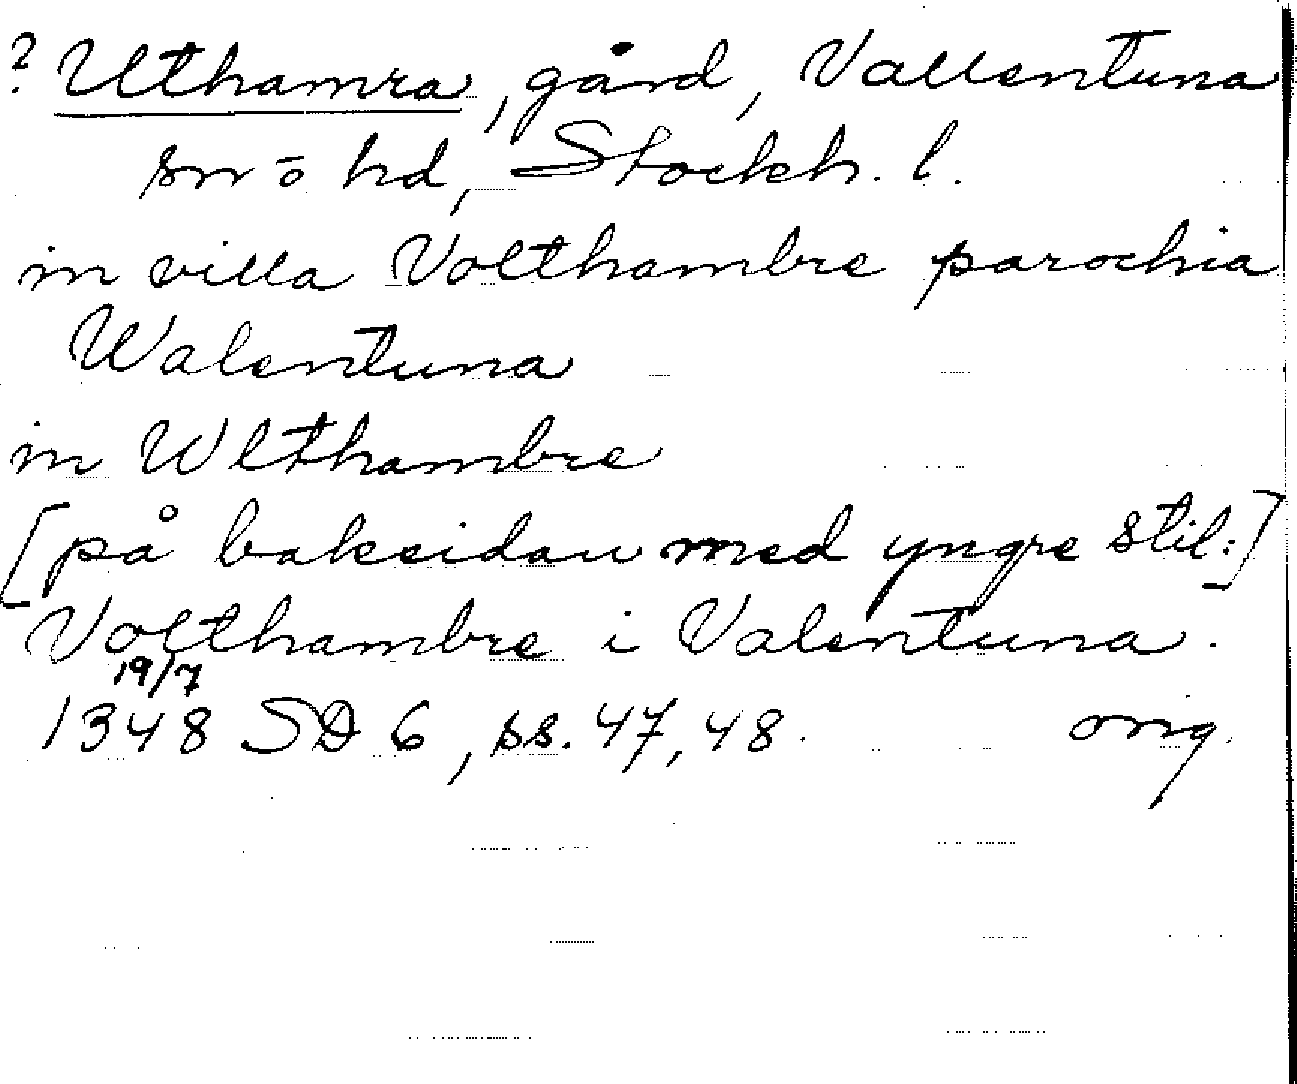 ? Uthamra, gård, Vallentuna
sn o hd, Stockh. l.
in villa Volthambre parochia
Walentuna
in Wlthambre
[på baksidan med yngre stil:]
Volthambre i Valentuna.
19/7
1348 SD 6, ss. 47, 48. orig.